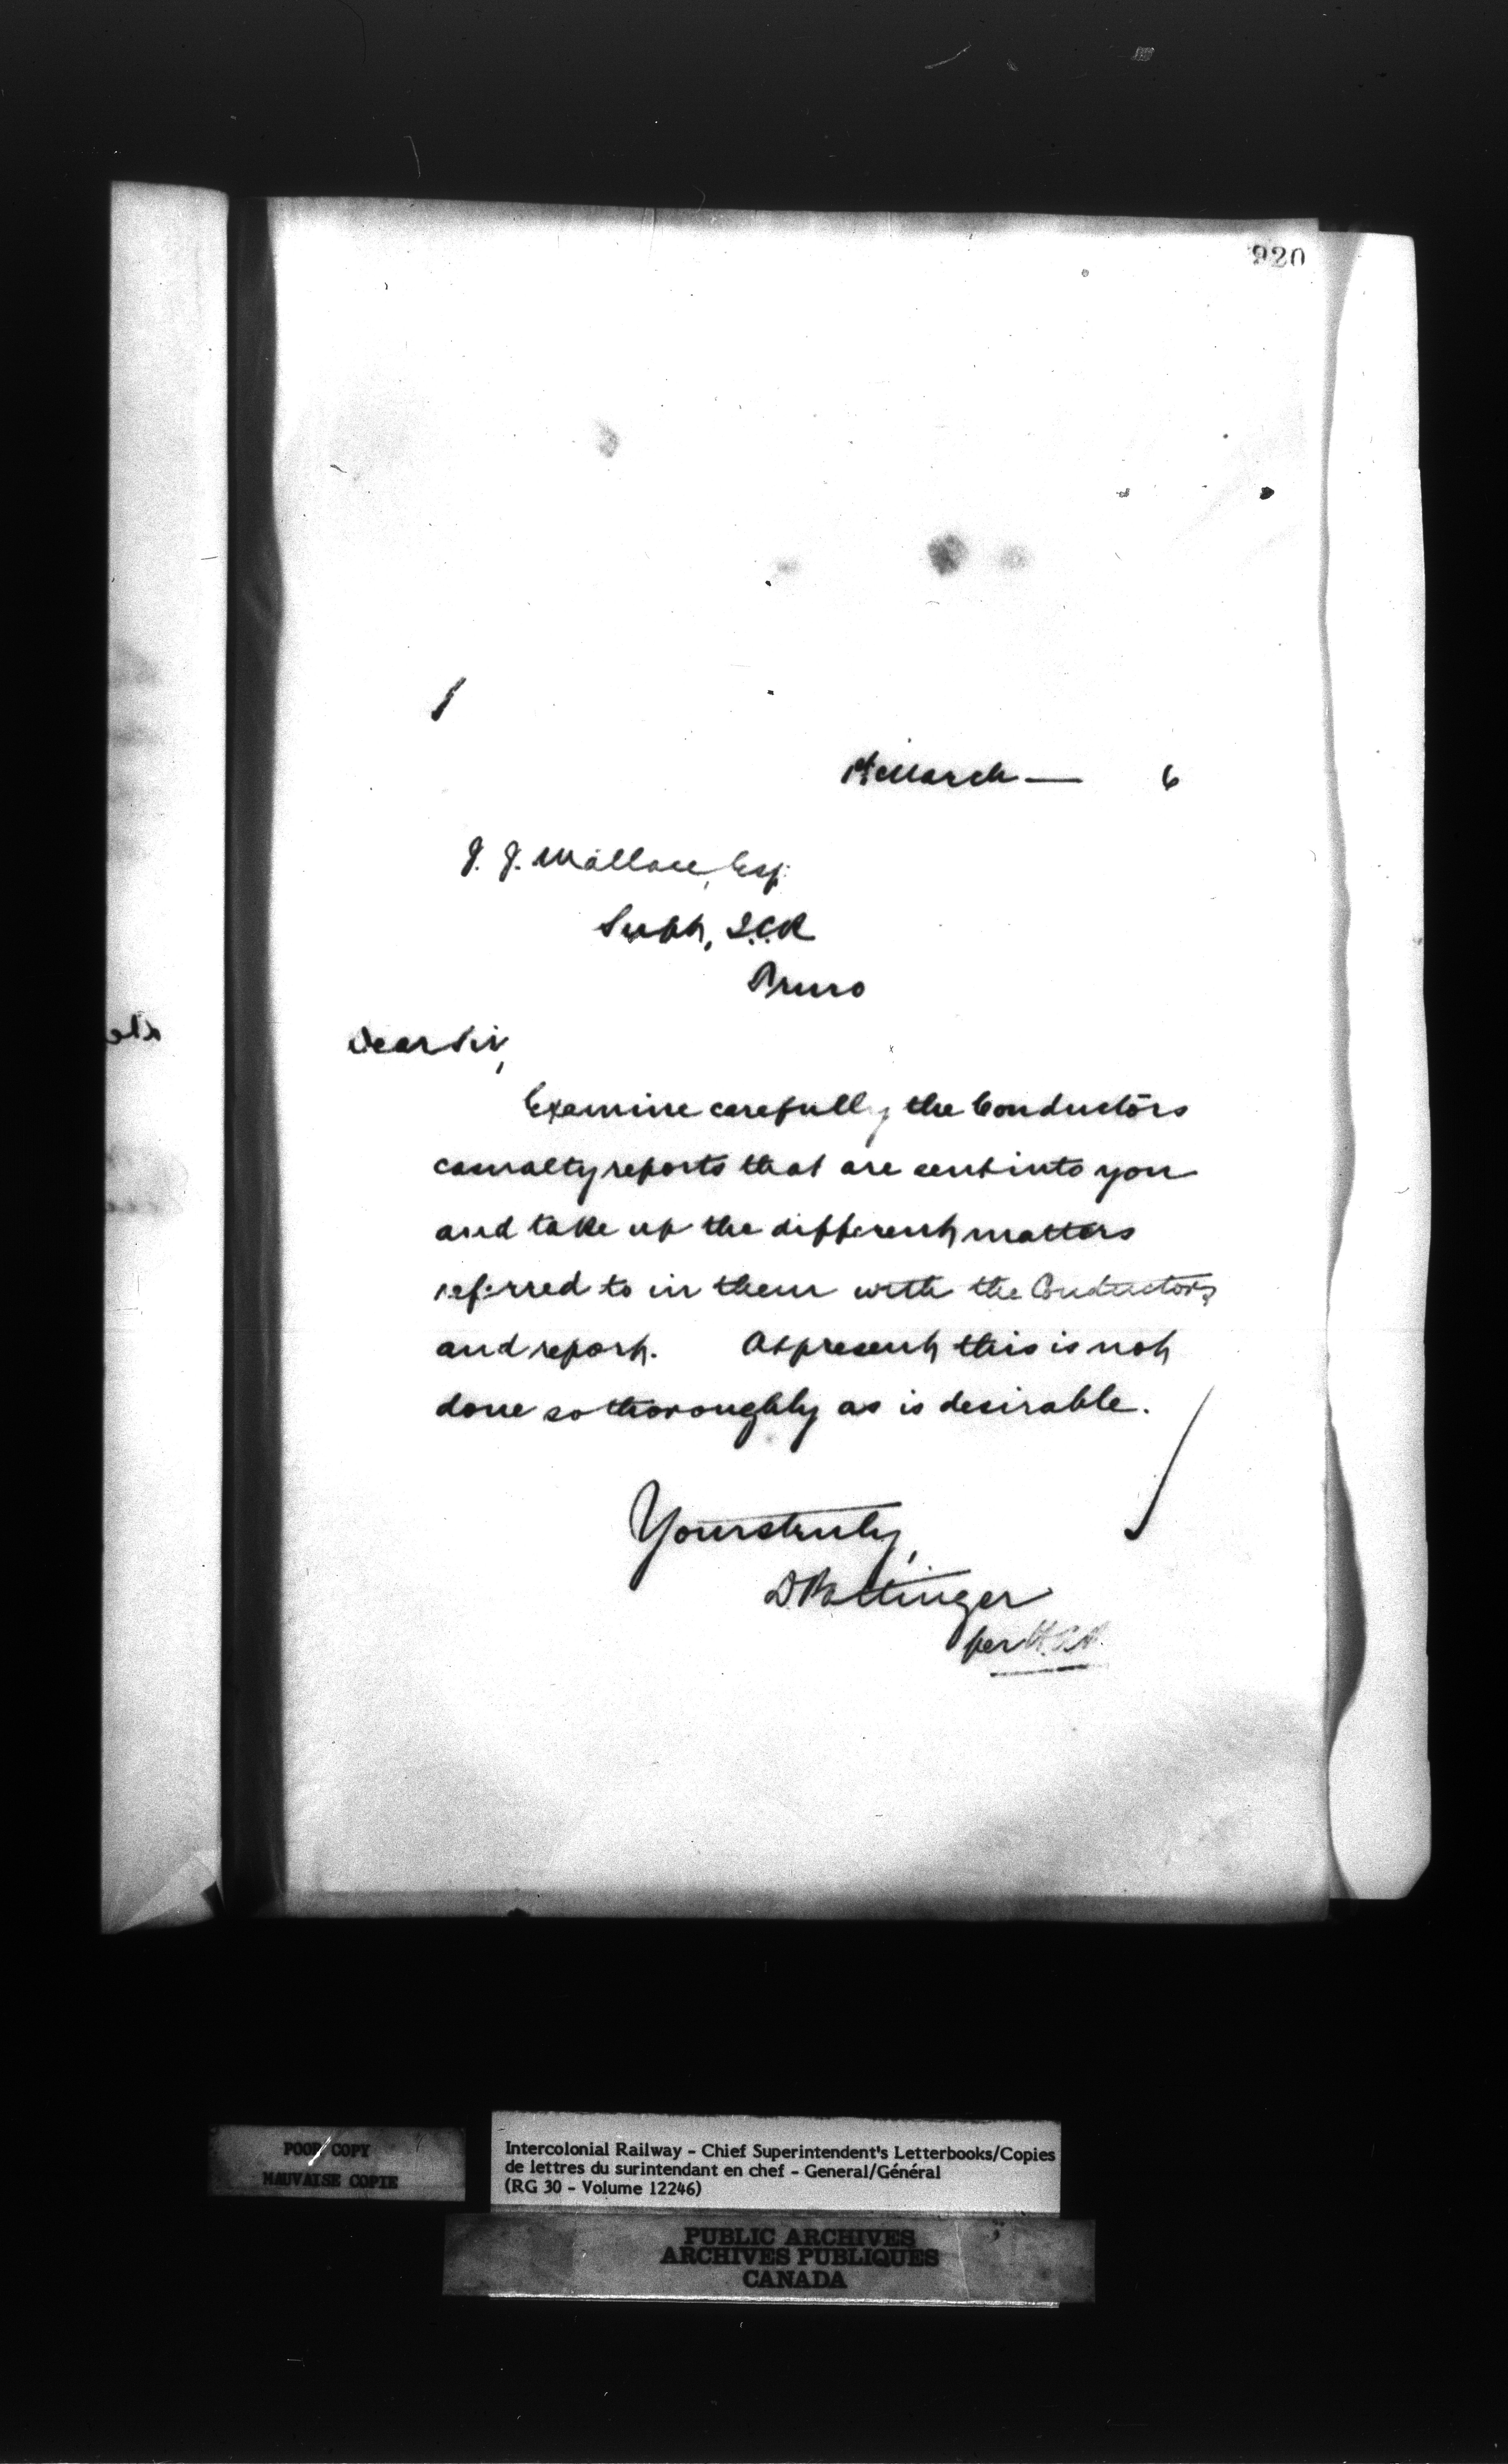 920
March — 6
J. J. Wallace, Esq.
Supt, I.C.R
Truro
Dear Sir,
Examine carefully the Conductors
casualty reports that are sent into you
and take up the different matters
referred to in them with the Conductors
and report. At present this is not
done so thoroughly as is desirable.
Yours truly,
D Pottinger
per
POOR COPY
MAUVAISE COPIE
Intercolonial Railway - Chief Superintendent's Letterbooks/Copies
de lettres du surintendant en chef - General/Général
(RG 30 - Volume 12246)
PUBLIC ARCHIVES
ARCHIVES PUBLIQUES
CANADA